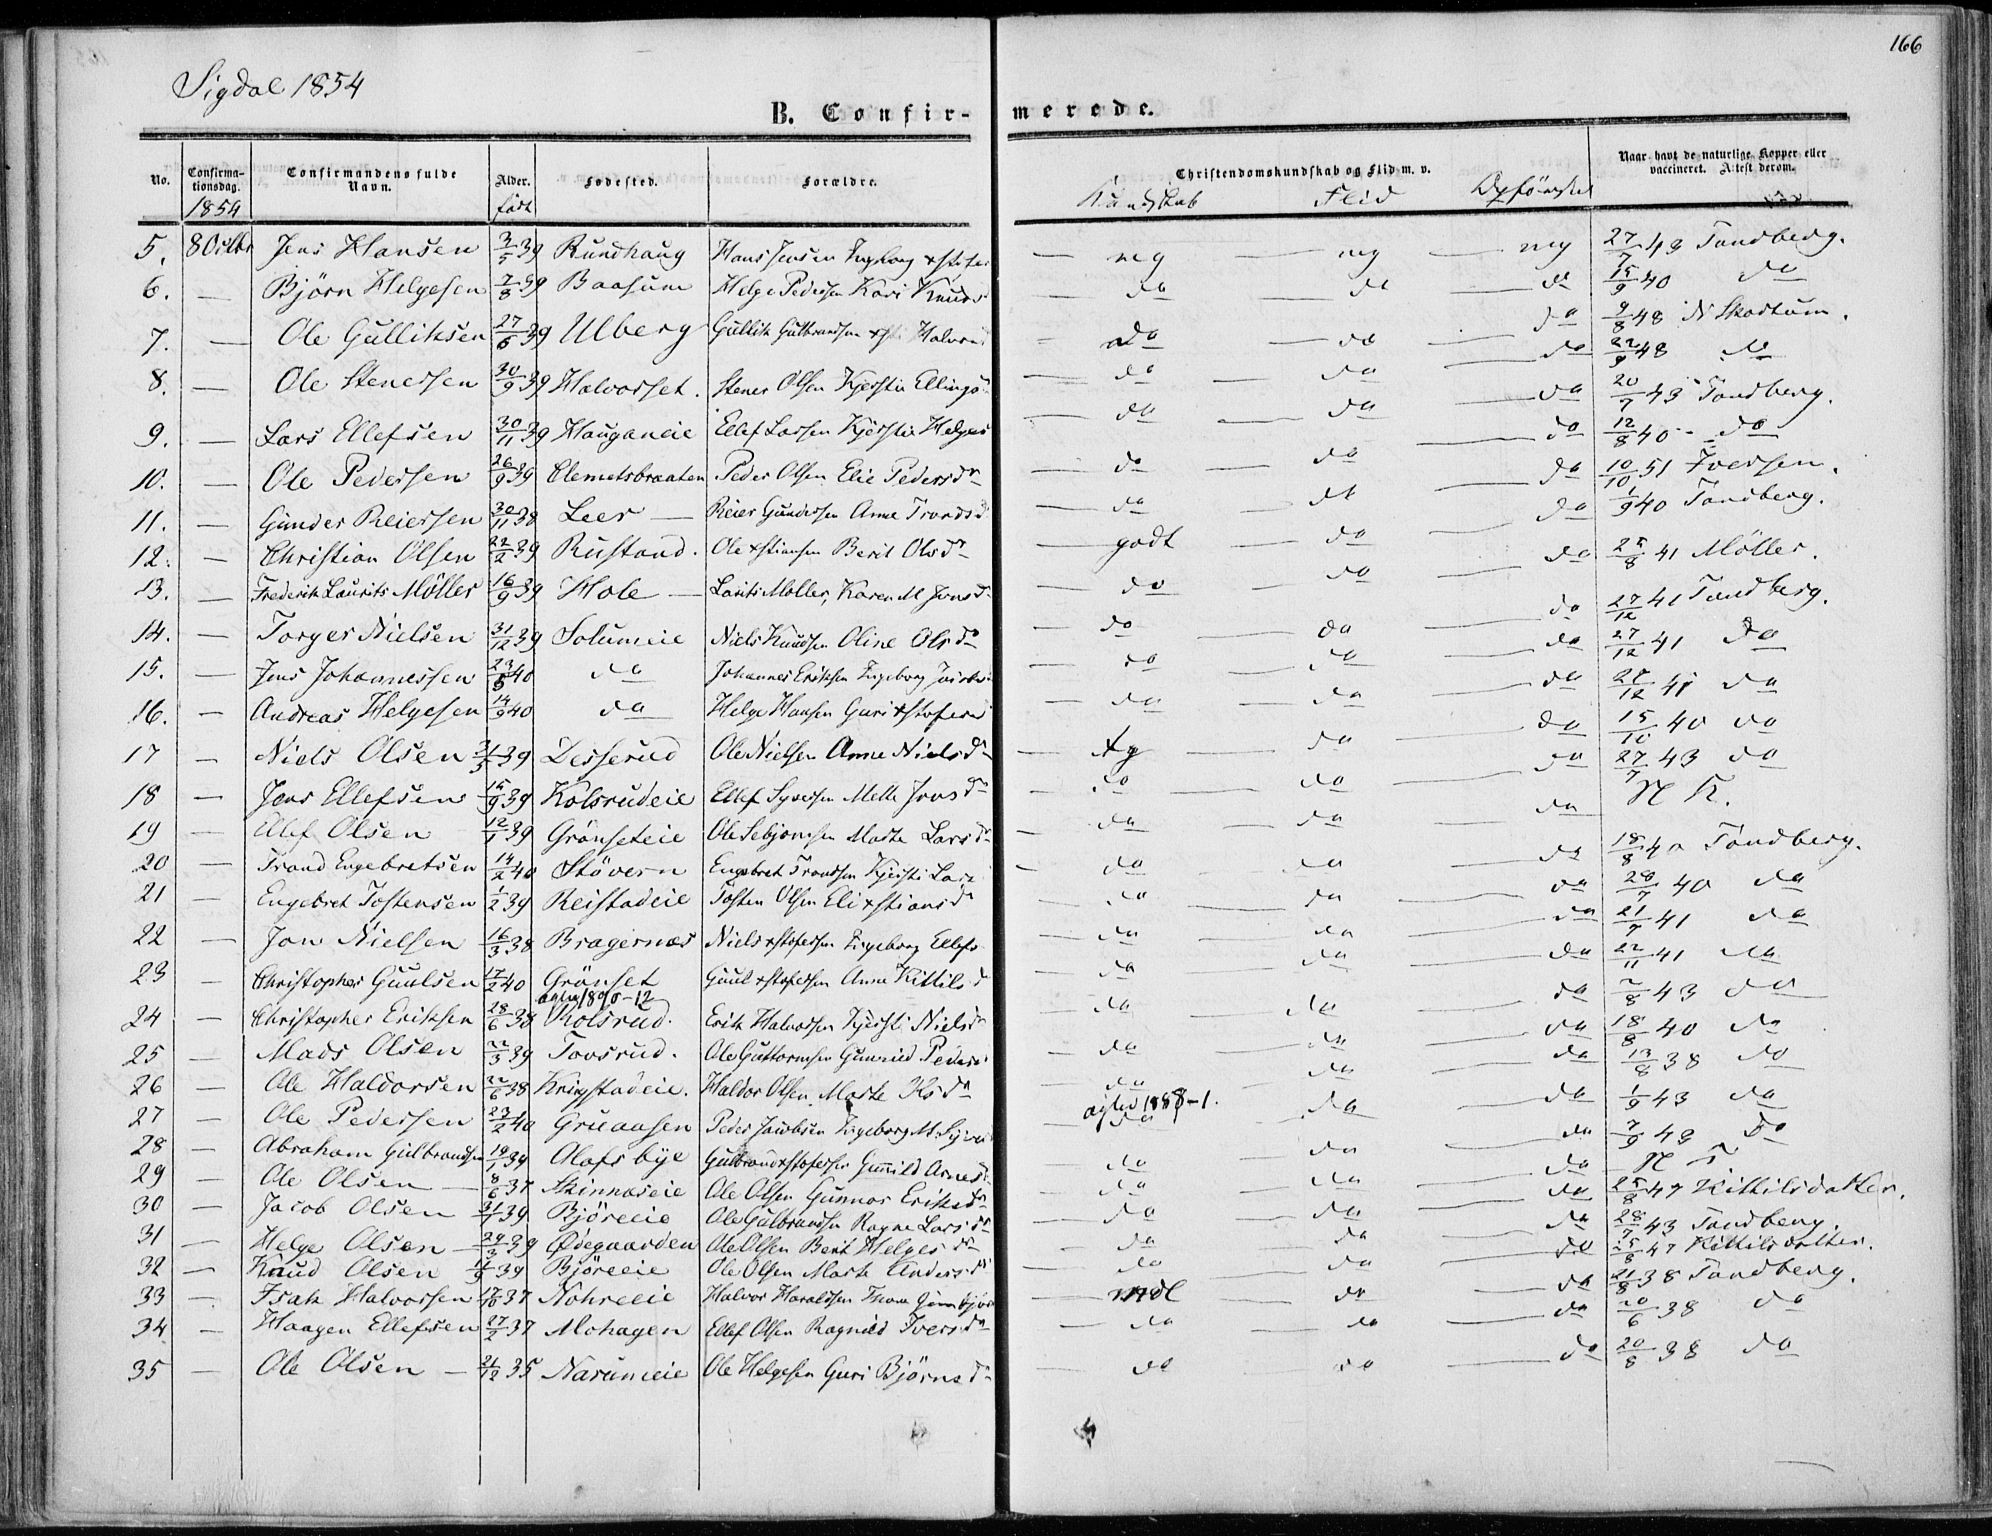 166
Sigdal 1854
B. Confir- merede.
No. Confirmationsdag. 1854 Confirmandens fulde Navn. Alder. født Fødested. Forældre. Christendomskundskab og Flid m. v. Kundskab Flid Opførsel Naar havt de naturlige Kopper eller vaccineret. Attest derom.
5. 8 Octbr Jens Hansen 3/5 39 Rundhaug Hans Jensen Ingeborg mg mg mg 27/7 43 Tandberg.
6. — Bjørn Helgesen 7/8 39 Baasum Helge Pedersen Kari Knuds do do do 15/9 40 do
7. — Ole Gulliksen 27/6 39 Ulberg Gullik Gulbrandsen Halvors do do do 9/8 48 Skartum.
8. — Ole Stenersen 30/9 39 Halvorset. Stener Olsen Kjerstin Ellingsd do do do 22/9 48 do
9. — Lars Ellefsen 30/11 39 Hauganeie Ellef Larsen Kjerstin Helges do do do 20/7 43 Tandberg.
10. — Ole Pedersen 26/9 39 Clemetsbraaten Peder Olsen Elie Pedersdr do do do 12/8 40 do
11. — Gunder Reiersen 30/11 38 Leer — Reier Gundersen Anne Trondsd do do do 10/10 51 Iversen.
12. — Christian Olsen 22/2 39 Rustand. Ole xstiansen Berit Olsdr godt do do 1/9 40 Tandberg.
13. — Frederik Laurits Möller 16/9 39 Hole — Larits Moller, Karen M Jonsd do do do 25/8 41 Möller.
14. — Torger Nielsen 31/12 39 Solumeie Niels Knudsen Oline Olsdr do do do 27/12 41 Tandberg.
15. — Jens Johannessen 23/5 40 do Johannes Eriksen Ingeborg do do do 27/12 41 do
16. — Andreas Helgesen 14/9 40 do Helge Hansen Guri xstofers do do do 27/12 41 do
17 — Niels Olsen 21/3 39 Desserud Ole Nielsen Anne Nielsdr tg do do 15/10 40 do
18 — Jens Ellefsen 15/9 39 Kolsrudeie Ellef Syversen Mette Jonsdr do do do 27/7 43 do
19 — Ellef Olsen 12/1 39 Grönseteie Ole Marte Larsdr do do do N K.
20 — Trond Engebretsen 14/2 40 Stövern Engebret Trondsen Kjersti Lars do do do 18/8 40 Tandberg.
21 — Engebret Tostensen 1/2 39 Reistadeie Tosten Olsen Eli xstiansdr do do do 28/7 40 do
22 — Jon Nielsen 16/3 38 Bragernæs Niels xstofersen Ingeborg Ellefs do do do 21/7 41 do
23 — Christopher Guulsen 17/2 40 Grönset Guul xstofersen Anne Kittilsd do do do 22/11 41 do
24 — Christopher Eriksen 28/6 38 Kolsrud. Erik Halvorsen Kjersti Nielsdr do do do 2/8 43 do
25 — Mads Olsen 22/3 39 Tovsrud. Ole Guttormsen Gunnild Peders do do do 18/8 40 do
26 — Ole Haldorsen 22/6 38 Kringstadeie. Haldor Olsen Marte dr do do do 13/8 38 do
27 — Ole Pedersen 23/2 40 Gruaasen Peder Jacobsen Ingeborg M. 1888-1. do do do 1/9 43 do
28 — Abraham Gulbrandsen 19/1 39 Olafsbye Gulbrand xstofersen Gunnild Arnes do do do 7/9 43 do
29 — Ole Olsen — 8/6 37 Skinnæseie Ole Olsen Gunnor Eriksdr do do do N
30 — Jacob Olsen 31/7 39 Björeeie Ole Gulbrandsen Ragne Larsdr do do do 25/8 47 Kittilsdatter.
31 — Helge Olsen — 24/3 39 Ødegaarden Ole Olsen Berit Helgesdr do do do 28/7 43 Tandberg.
32 — Knud Olsen 11/9 39 Björeeie Ole Olsen Marte Andersdr do do do 25/8 47 Kittilsdatter.
33 — Isak Halvorsen 17/10 37 Nohreeie Halvor Haraldsen mdl do do 21/8 38 Tandberg.
34 — Haagen Ellefsen 27/2 37 Mohagen Ellef Olsen Ragnild Iversdr do do do 20/6 38 do
35 — Ole Olsen — 21/12 35 Narumeie Ole Helgesen Guri Björnsdr do do do 20/8 38 do